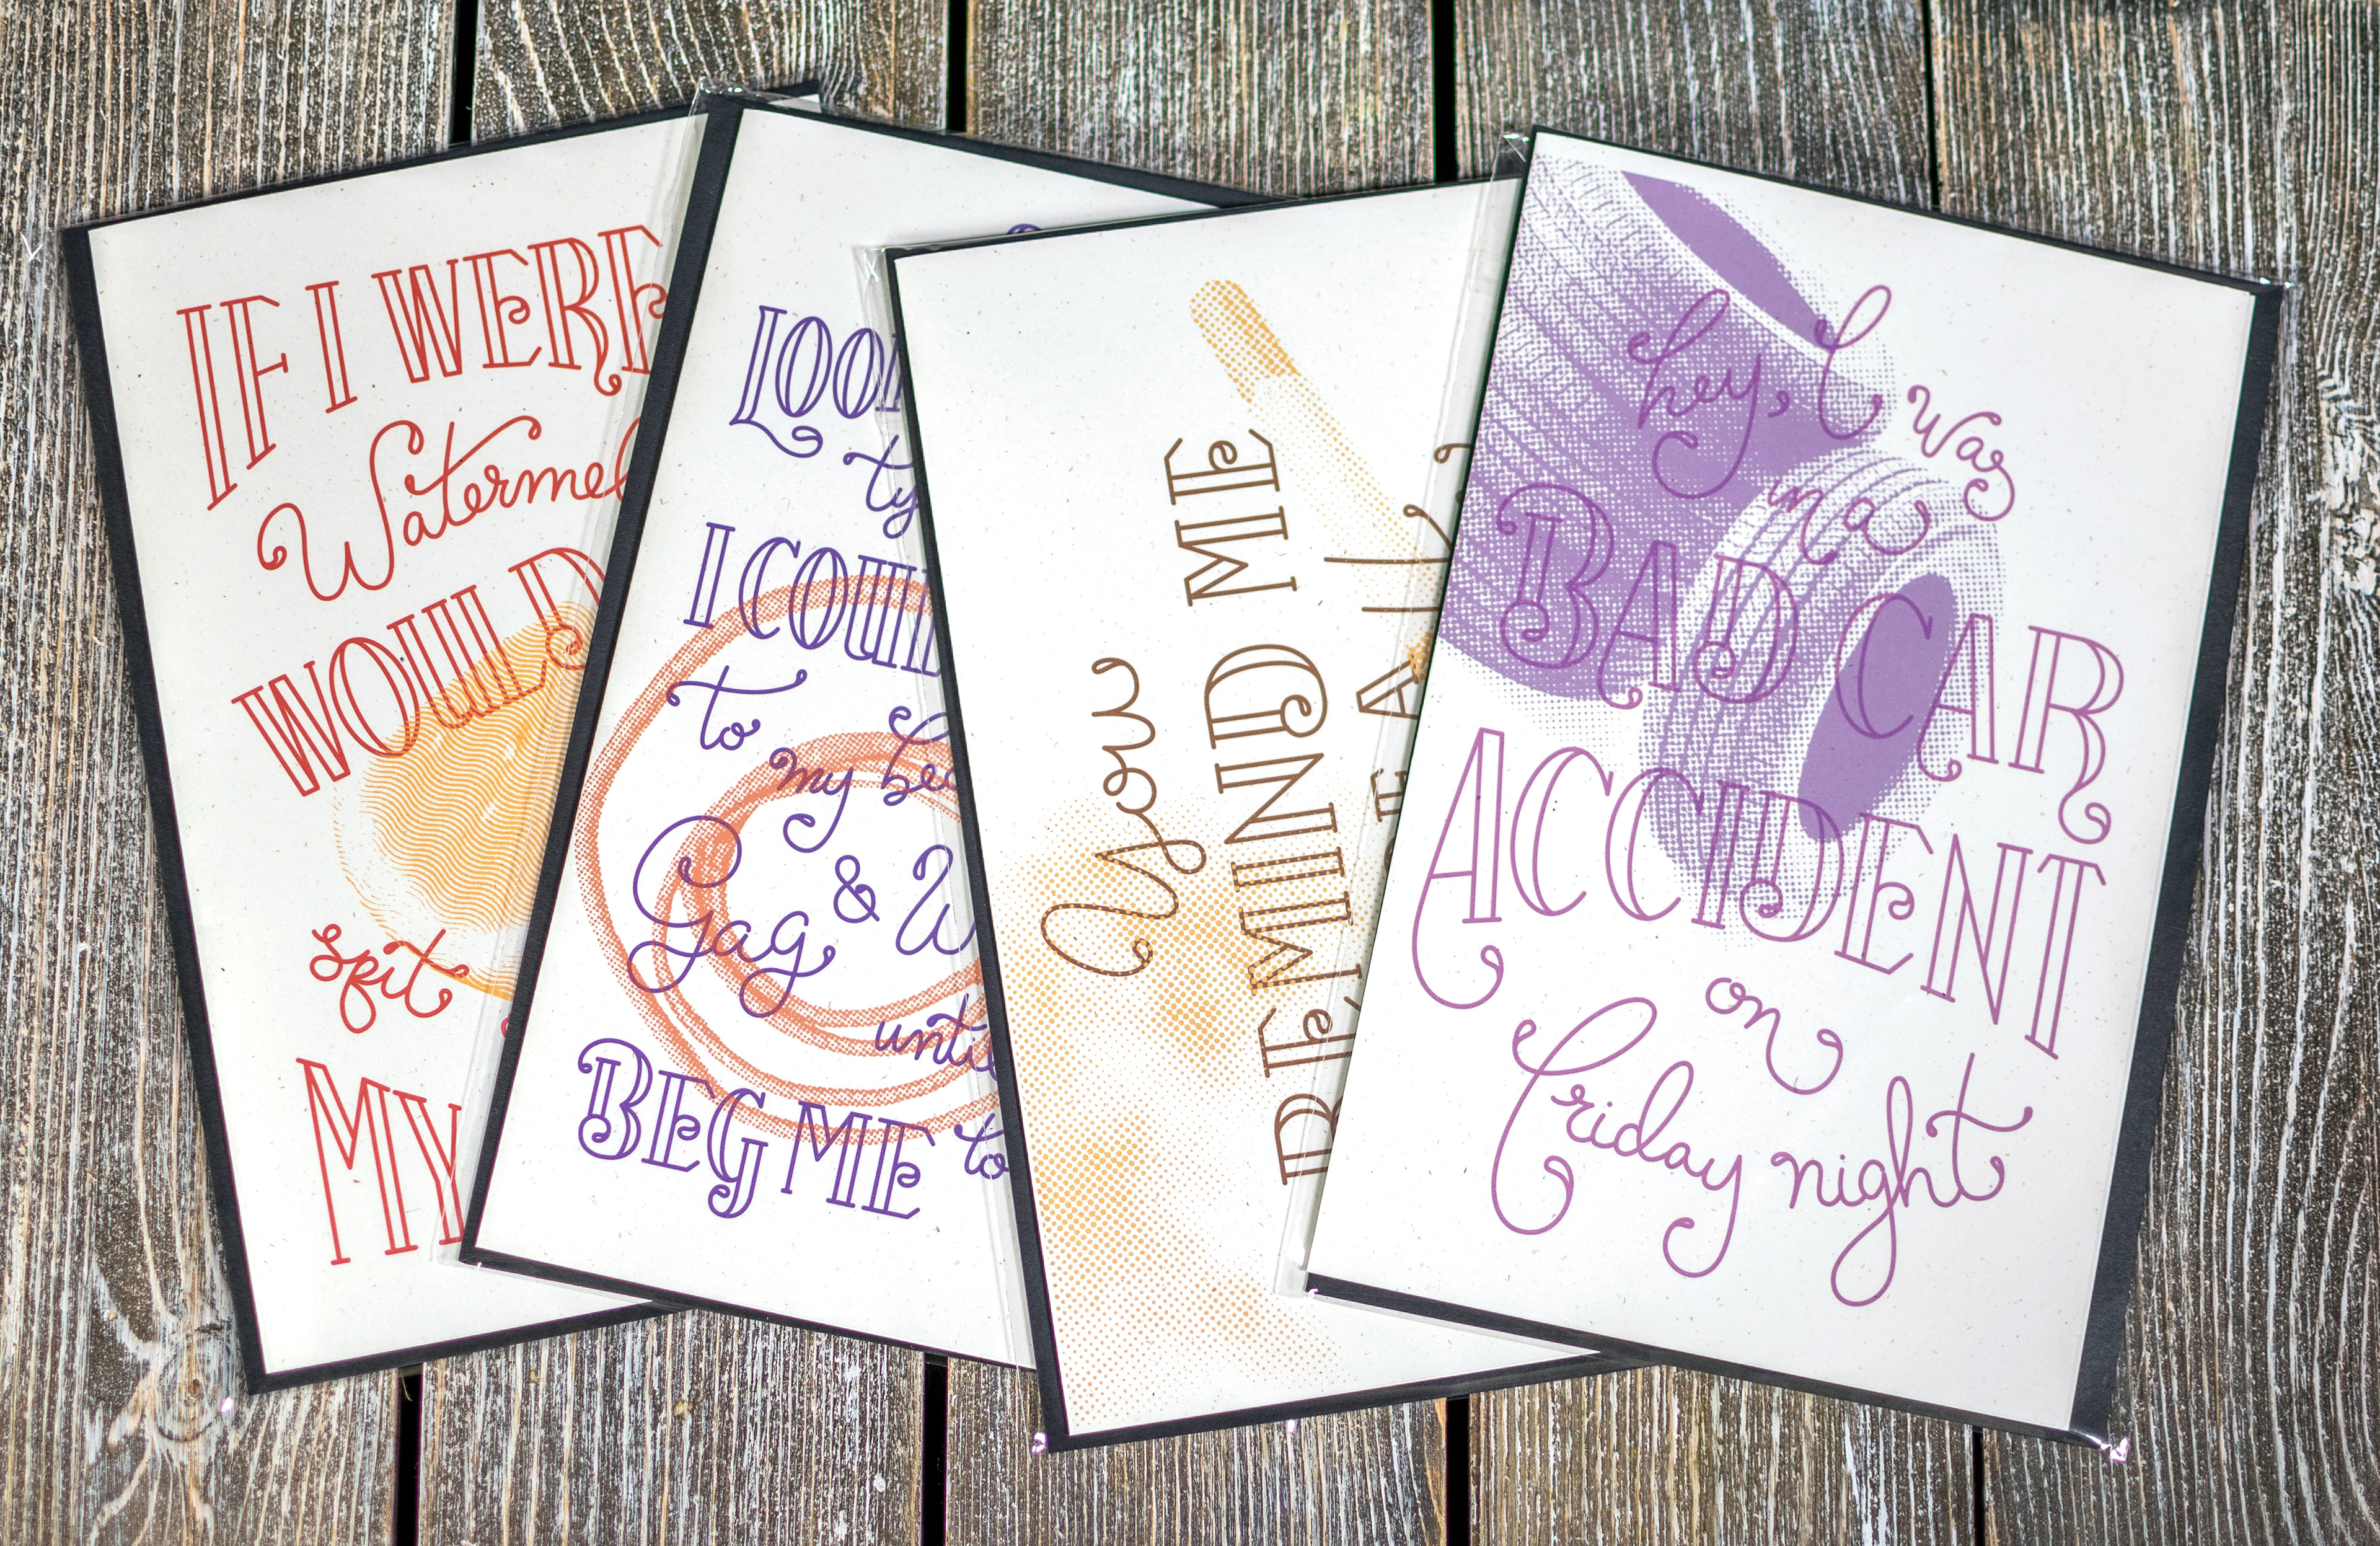 IF I WERE
Watermel
WOULD
Spit
MY
LOO
ty
I COUL
to
my
Gag & W
until
BEG ME to
You
REMIND ME
hey, I was
in a
BAD CAR
ACCIDENT
on
Friday night